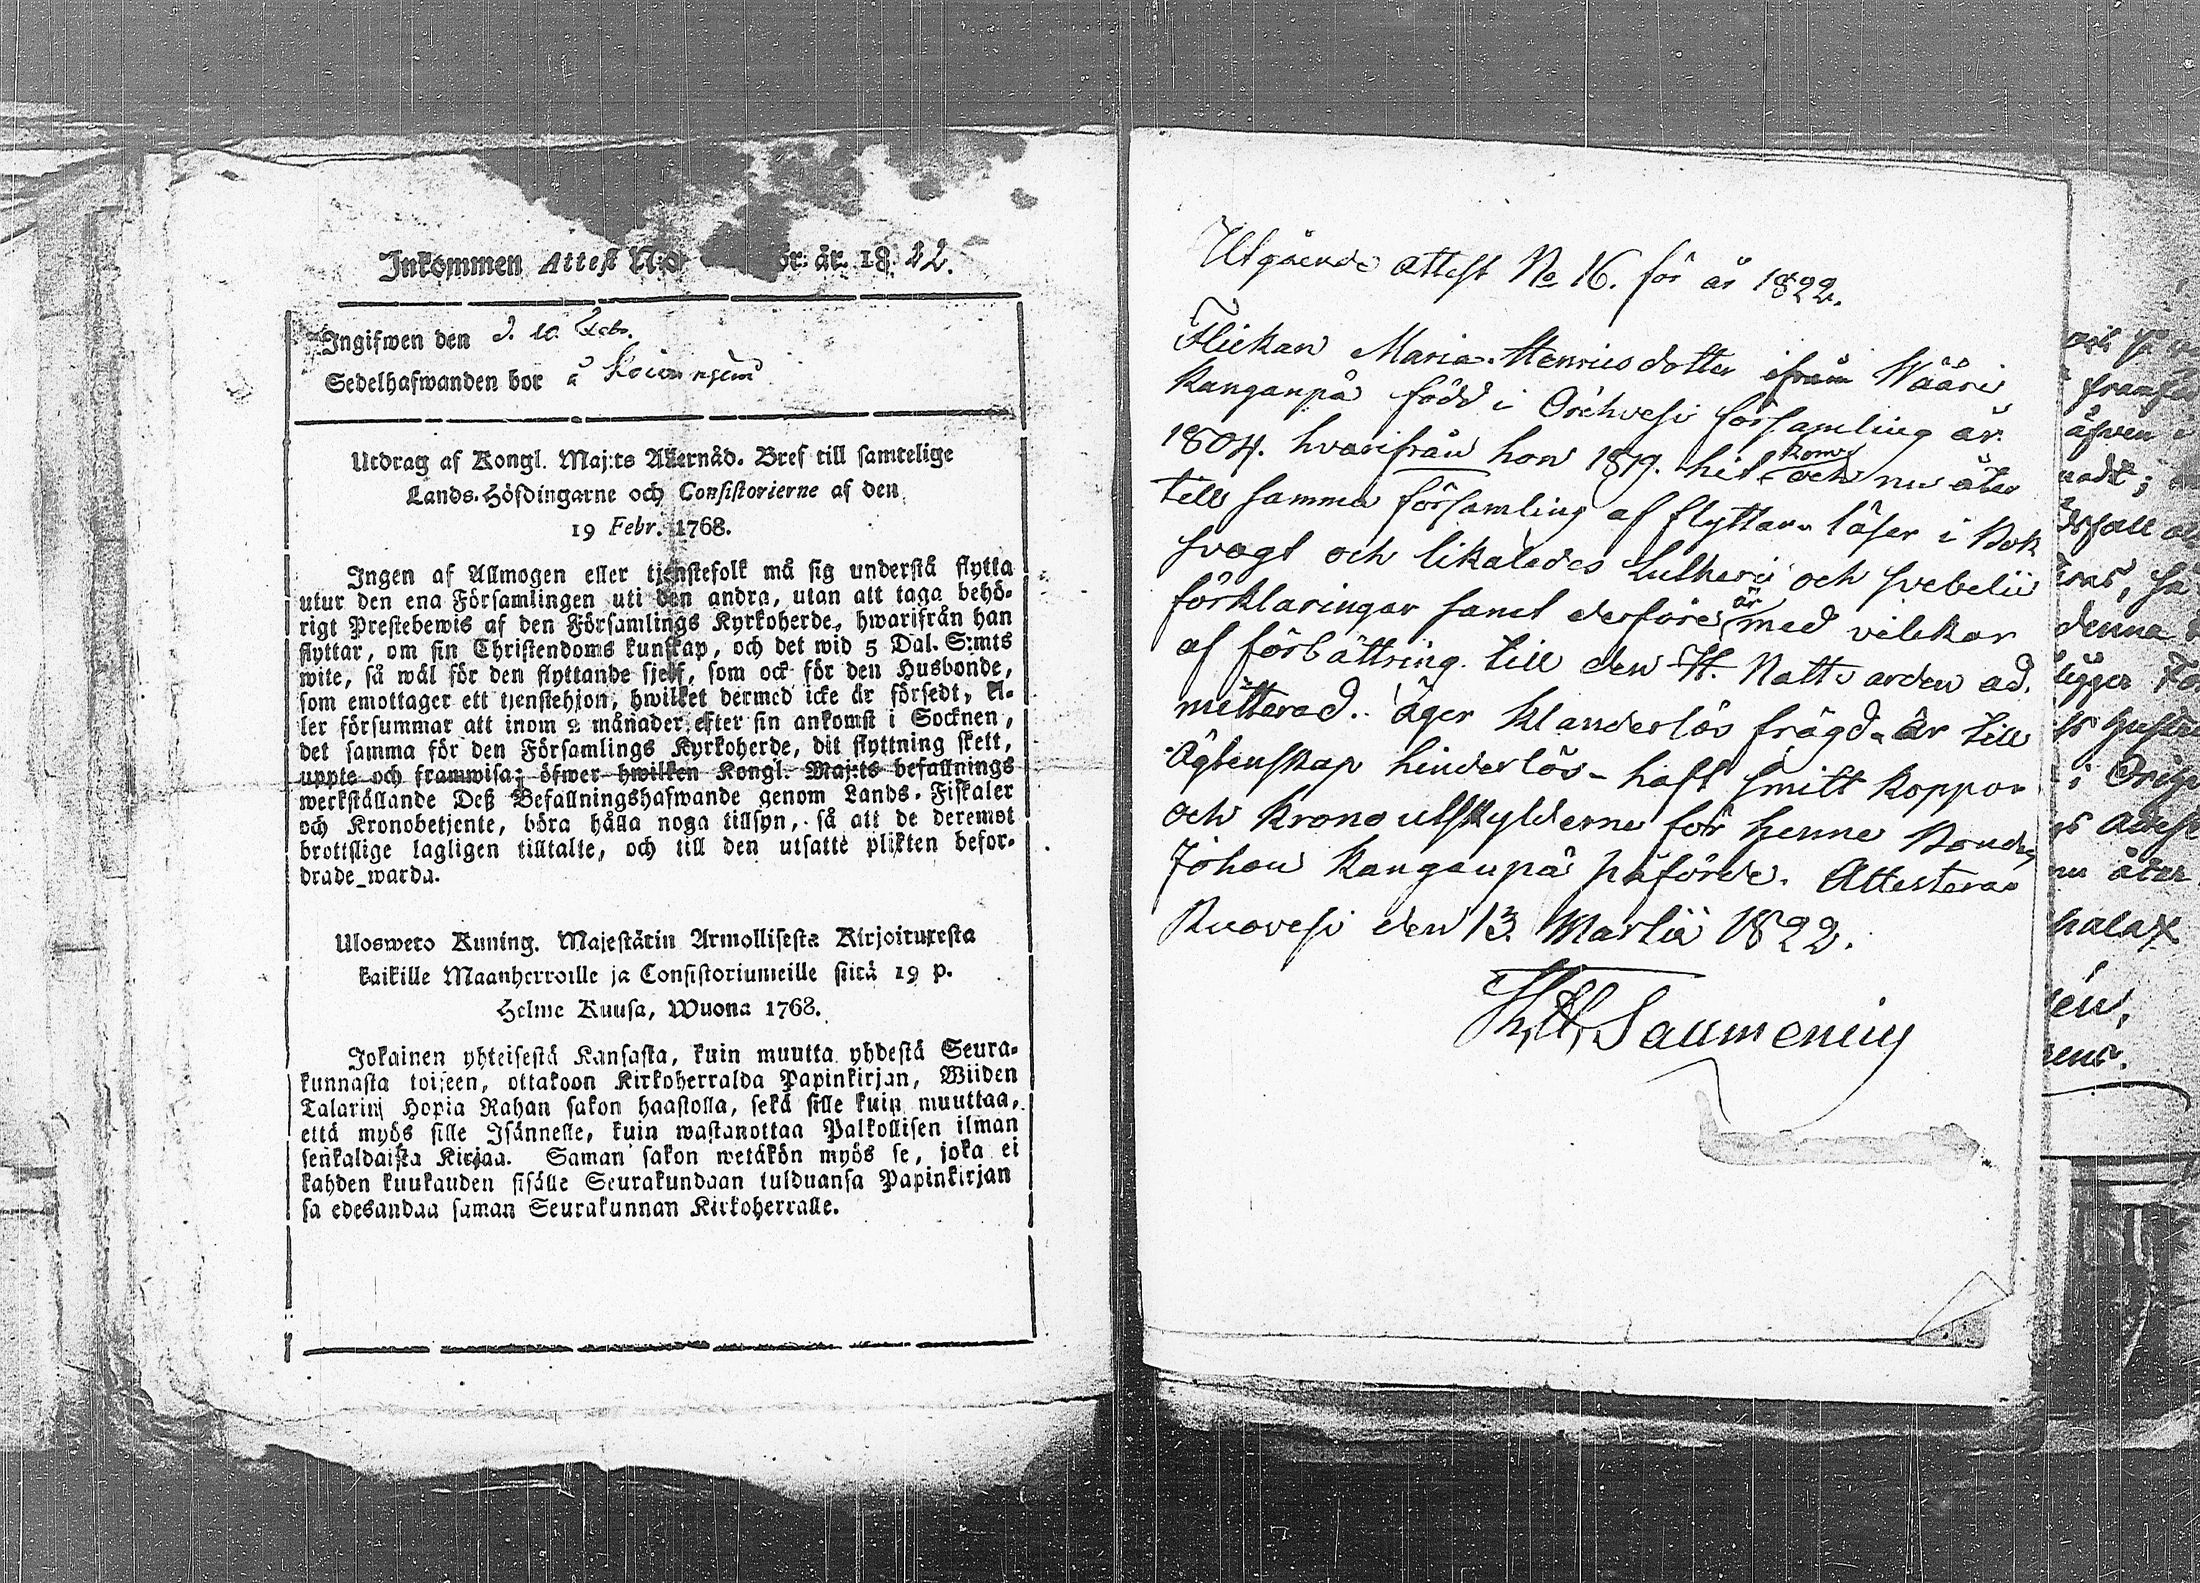 Inkommen Attest N:o ör år 18 22.
Ingifwen den d. 10 Febr.
Sedelhafwanden bor å
Utdrag af Kongl. Maj:ts Allernåd. Bref till samtelige
Lands-Höfdingarne och Consistorierne af den
19 Febr. 1768.
Ingen af Allmogen eller tjenstefolk må sig understå flytta
utur den ena Församlingen uti den andra, utan att taga behö-
rigt Prestebewis af den Församlings Kyrkoherde, hwarifrån han
flyttar, om sin Christendoms kunskap, och det wid 5 Dal. S:mts
wite, så wäl för den flyttande sjelf, som ock för den Husbonde,
som emottager ett tjenstehjon, hwilket dermed icke är försedt, el-
ler försummar att inom 2 månader efter sin ankomst i Socknen,
det samma för den Församlings Kyrkoherde, dit flyttning skett,
uppte och framwisa; öfwer hwilken Kongl. Maj:ts befallnings
werkställande Deß Befallningshafwande genom Lands-Fiskaler
och Kronobetjente, böra hålla noga tillsyn, så att de deremot
brottslige lagligen tilltalte, och till den utsatte plikten befor-
drade warda.
Ulosweto Kuning. Majestätin Armollisesta Kirjoituxesta
kaikille Maanherroille ja Consistoriumeille siitä 19 p.
Helme Kuusa, Wuona 1768.
Jokainen yhteisestä Kansasta, kuin muutta yhdestä Seura-
kunnasta toiseen, ottakoon Kirkoherralda Papinkirjan, Wiiden
Talarin Hopia Rahan sakon haastolla, sekä sille kuin muuttaa,
että myös sille Isännelle, kuin wastanottaa Palkollisen ilman
senkaldaista Kirjaa. Saman sakon wetäkön myös se, joka ei
kahden kuukauden sisälle Seurakundaan tulduansa Papinkirjan
sa edesandaa saman Seurakunnan Kirkoherralle.
Utgående attest No 16. för år 1822.
Flickan Maria Henricsdotter ifrån Wääri
Kanganpä född i Orihvesi församling år
1804. hvarifrån hon 1819. hit kom och nu åter
till samma församling afflyttar. läser i Bok
svagt och likaledes Lutheri och Svebelii
förklaringar samt derföre är med vilckor
af förbättring till den H. Nattvarden ad-
mitterad. äger klanderlös frägd. är till
ägtenskap hinderlös - haft smitt koppor
och Krono utskylderne för henne Bonden
Johan Kangenpä påförde. Attesteras
Ruovesi den 13. Martii 1822.
äfwen
denna
ligger
i
åter